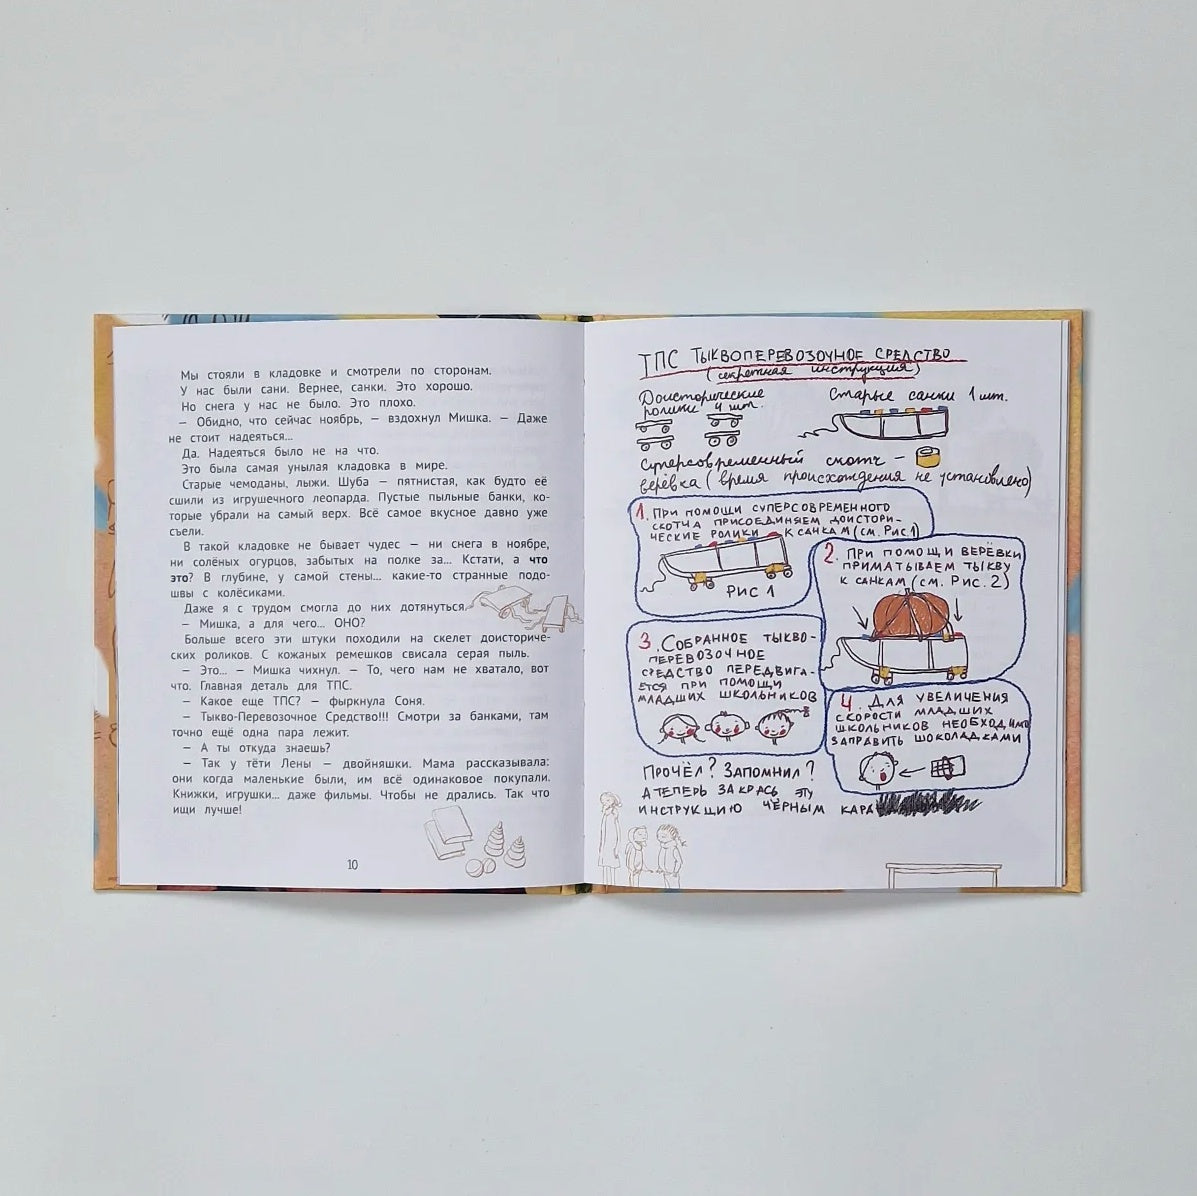 Мы стояли в кладовке и смотрели по сторонам.
У нас были сани. Вернее, санки. Это хорошо.
Но снега у нас не было. Это плохо.
– Обидно, что сейчас ноябрь, – вздохнул Мишка. – Даже
не стоит надеяться...
Да. Надеяться было не на что.
Это была самая унылая кладовка в мире.
Старые чемоданы, лыжи. Шуба – пятнистая, как будто её
сшили из игрушечного леопарда. Пустые пыльные банки, ко-
торые убрали на самый верх. Всё самое вкусное давно уже
съели.
В такой кладовке не бывает чудес – ни снега в ноябре,
ни солёных огурцов, забытых на полке за... Кстати, а что
это? В глубине, у самой стены... какие-то странные подо-
швы с колёсиками.
Даже я с трудом смогла до них дотянуться.
– Мишка, а для чего... ОНО?
Больше всего эти штуки походили на скелет доисториче-
ских роликов. С кожаных ремешков свисала серая пыль.
– Это... – Мишка чихнул. – То, чего нам не хватало, вот
что. Главная деталь для ТПС.
– Какое еще ТПС? – фыркнула Соня.
– Тыкво-Перевозочное Средство!!! Смотри за банками, там
точно ещё одна пара лежит.
– А ты откуда знаешь?
– Так у тёти Лены – двойняшки. Мама рассказывала:
они когда маленькие были, им всё одинаковое покупали.
Книжки, игрушки... даже фильмы. Чтобы не дрались. Так что
ищи лучше!
10
ТПС ТЫКВОПЕРЕВОЗОЧНОЕ СРЕДСТВО
(секретная инструкция)
Доисторические
ролики 4 шт.
Старые санки 1 шт.
Суперсовременный скотч –
верёвка (время происхождения не установлено)
1. ПРИ ПОМОЩИ СУПЕРСОВРЕМЕННОГО
СКОТЧА ПРИСОЕДИНЯЕМ ДОИСТОРИ-
ЧЕСКИЕ РОЛИКИ К САНКАМ (см. РИС.1)
РИС 1
2. ПРИ ПОМОЩИ ВЕРЁВКИ
ПРИМАТЫВАЕМ ТЫКВУ
К САНКАМ (СМ. РИС. 2)
3. СОБРАННОЕ ТЫКВО-
ПЕРЕВОЗОЧНОЕ
СРЕДСТВО ПЕРЕДВИГА-
ЕТСЯ ПРИ ПОМОЩИ
МЛАДШИХ ШКОЛЬНИКОВ
4. ДЛЯ УВЕЛИЧЕНИЯ
СКОРОСТИ МЛАДШИХ
ШКОЛЬНИКОВ НЕОБХОДИМО
ЗАПРАВИТЬ ШОКОЛАДКАМИ
ПРОЧЁЛ? ЗАПОМНИЛ?
А ТЕПЕРЬ ЗАКРАСЬ ЭТУ
ИНСТРУКЦИЮ ЧЁРНЫМ КАРА